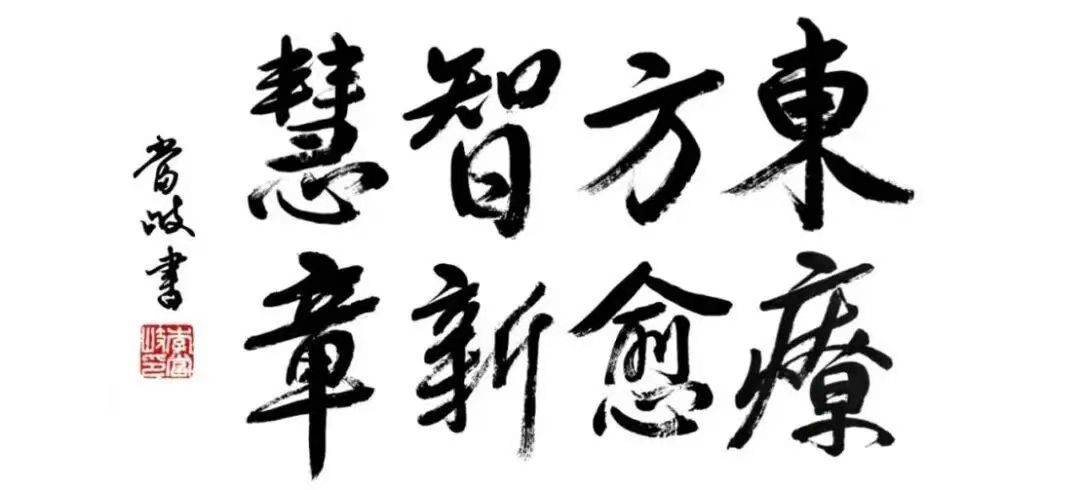 東方智慧
療愈新章
岐書